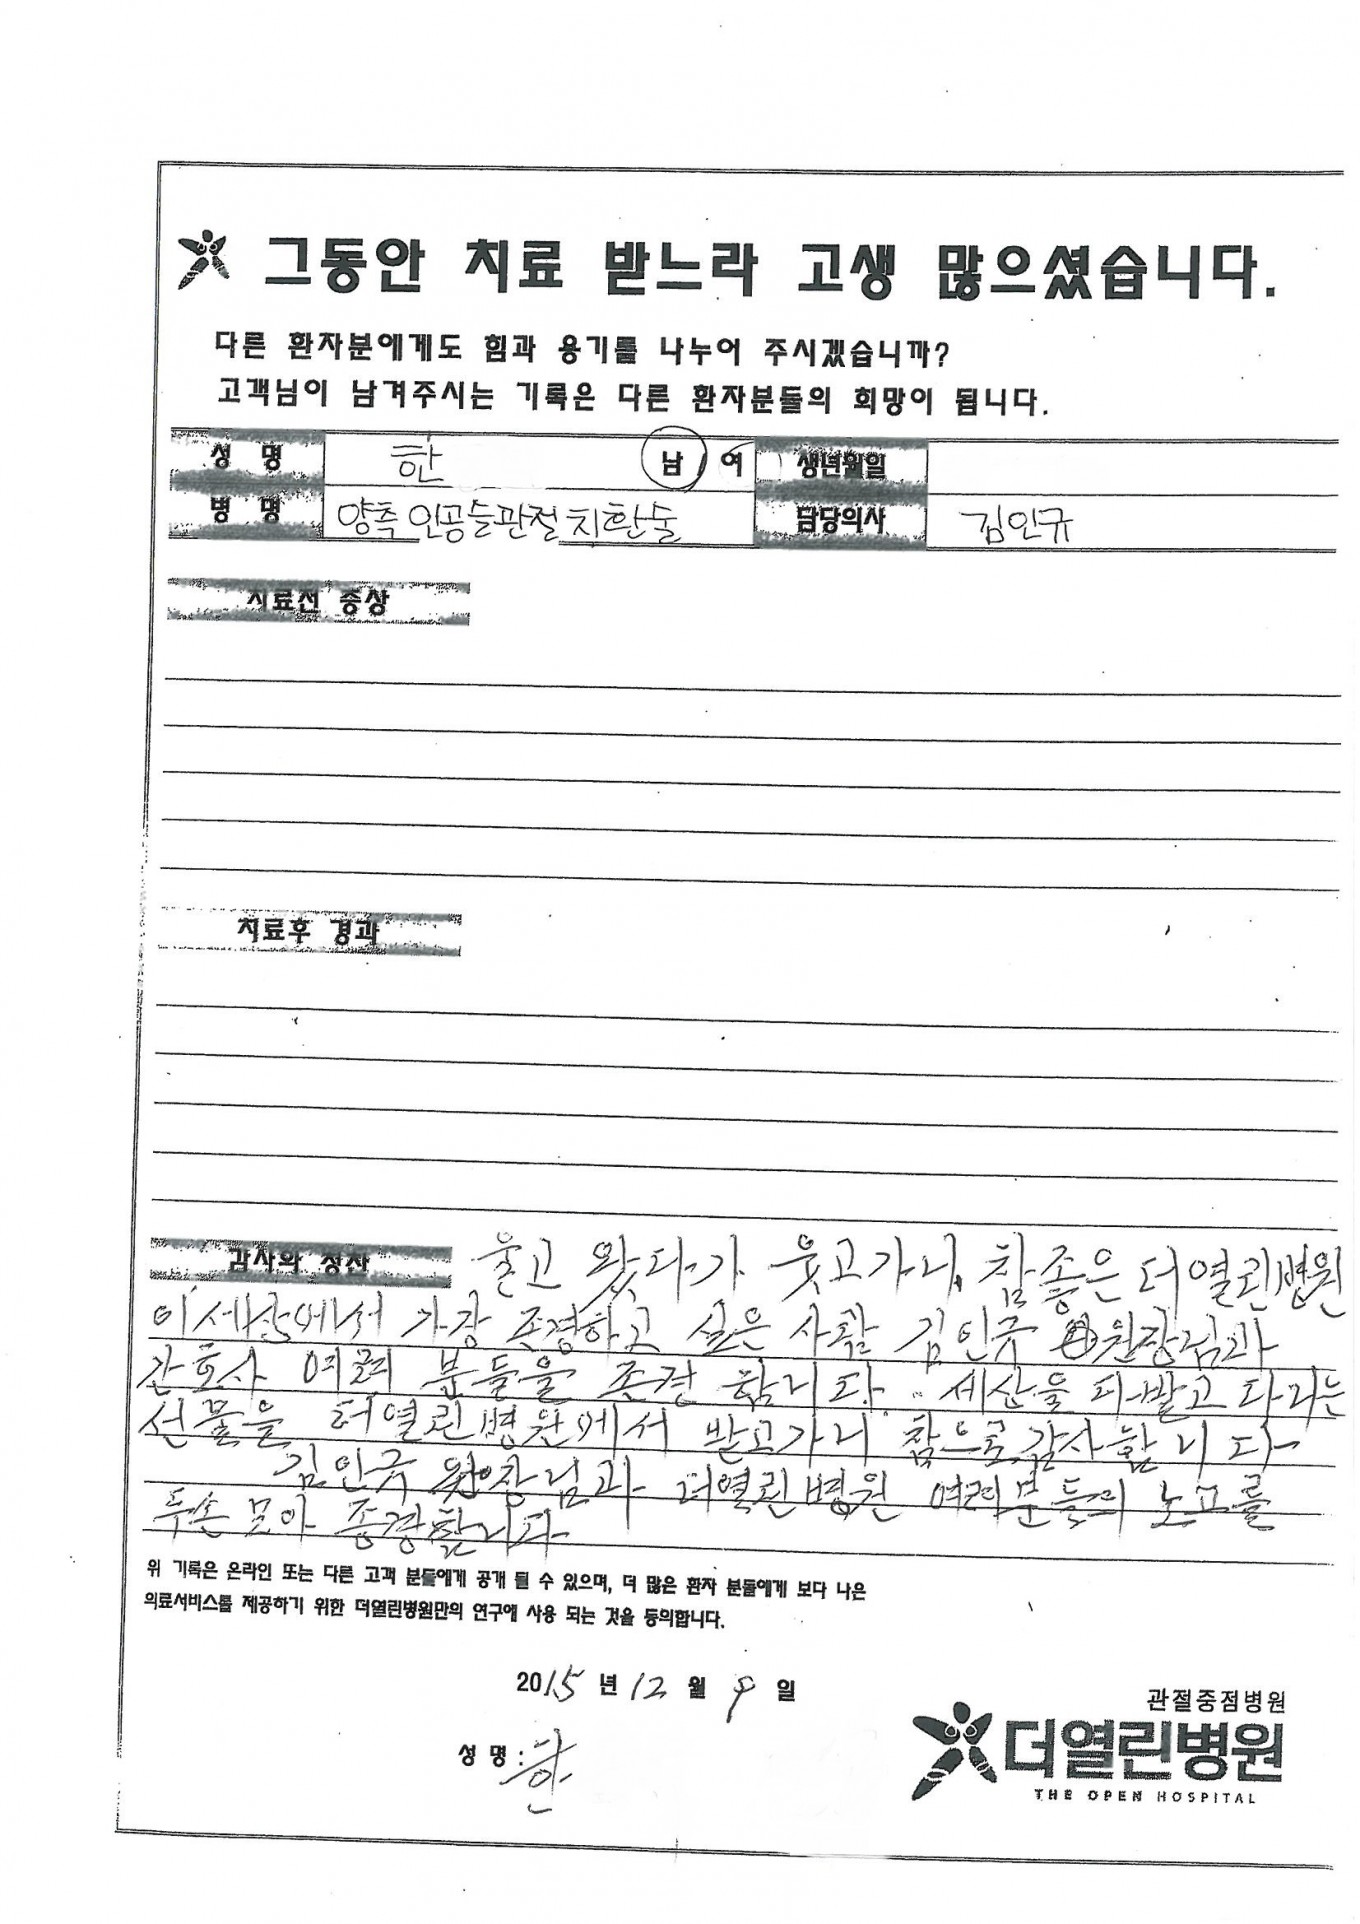 그동안 치료 받느라 고생 많으셨습니다.
다른 환자분에게도 힘과 용기를 나누어 주시겠습니까?
고객님이 남겨주시는 기록은 다른 환자분들의 희망이 됩니다.
성 명 한 남 / 여 생년월일
병 명 양측 인공슬관절 치환술 담당의사 김인규
치료전 증상
치료후 경과
감사와 칭찬 울고 왔다가 웃고가니, 참좋은 더열린병원
이세상에서 가장 존경하고 싶은 사람 김인규 원장님과
간호사 여러 분들을 존경 합니다. 세상을 다발고 다니는
선물을 더열린병원에서 받고가니 참으로 감사합니다
김인규 원장님과 더열린병원 여러분들의 노고를
두손 모아 존경합니다
위 기록은 온라인 또는 다른 고객 분들에게 공개 될 수 있으며, 더 많은 환자 분들에게 보다 나은
의료서비스를 제공하기 위한 더열린병원만의 연구에 사용 되는 것을 동의합니다.
2015 년 12 월 9 일
관절중점병원
더열린병원
THE OPEN HOSPITAL
성 명 : 한